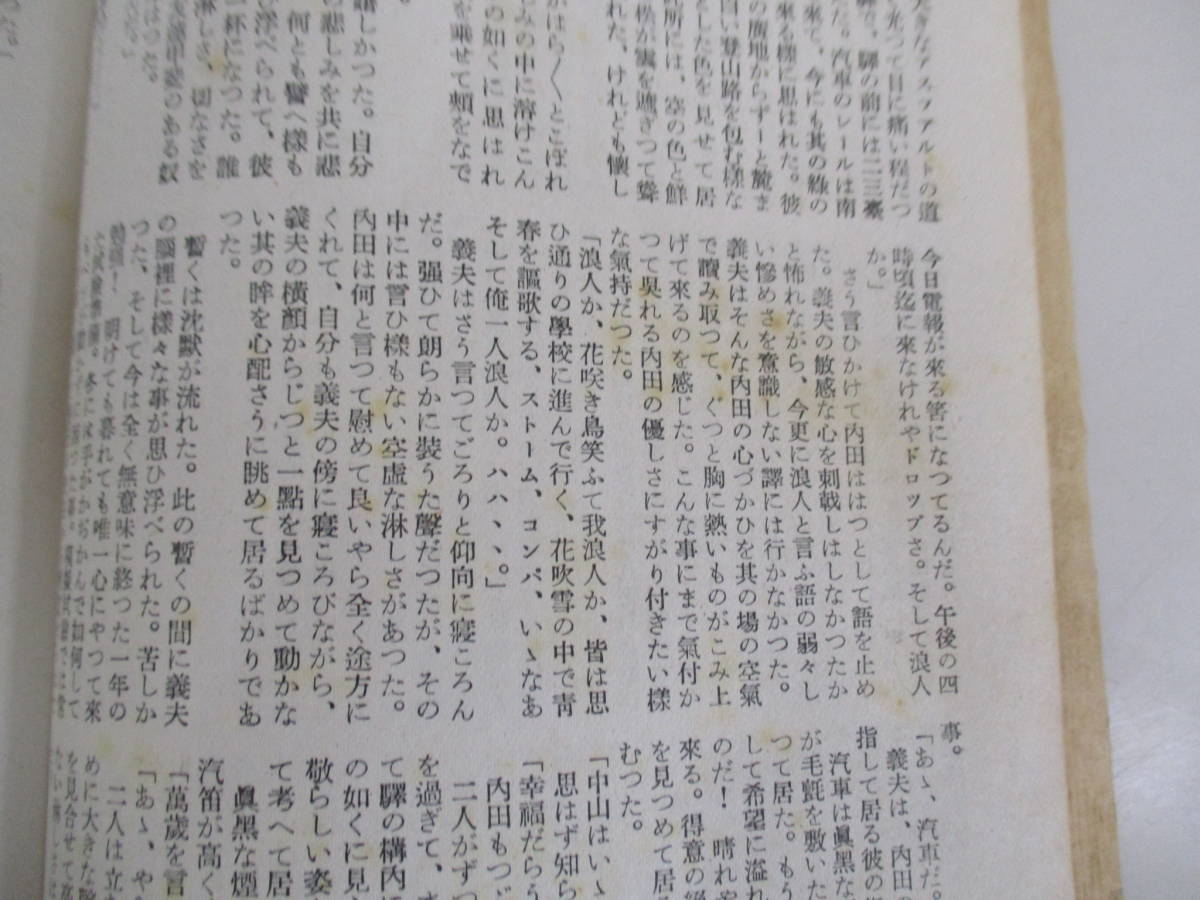 大きなアスファルトの道
光つて目に痛い程だつ
驛の前には二三臺
た。汽車のレールは南
來て、今にも其の綠の
來る樣に思はれた。彼
の腹地からずーと麓ま
白い登山路を包む樣な
とした色を見せて居
所には、空の色と鮮
樅が雲を遮ぎつて聳
れた、けれども懷し
がはら〳〵とこぼれ
みの中に溶けこん
の如くに思はれ
を乘せて頰をなで
しかつた。自分
悲しみを共に悲
何とも譬へ樣も
浮べられて、彼
一杯になつた。誰
淋しさ、切なさを
甲斐のある奴
はつた。
今日電報が來る筈になつてるんだ。午後の四
時頃迄に來なけれやドロップさ。そして浪人
か。」
さう言ひかけて內田ははつとして語を止め
た。義夫の敏感な心を刺戟しはしなかつたか
と怖れながら、今更に浪人と言ふ語の弱々し
い慘めさを意識しない譯には行かなかつた。
義夫はそんな內田の心づかひを其の場の空氣
で讀み取つて、ぐつと胸に熱いものがこみ上
げて來るのを感じた。こんな事にまで氣付か
つて吳れる內田の優しさにすがり付きたい樣
な氣持だつた。
「浪人か、花咲き鳥笑ふて我浪人か、皆は思
ひ通りの學校に進んで行く、花吹雪の中で靑
春を謳歌する、ストーム、コンパ、いゝなあ
そして俺一人浪人か。ハハ、、。」
義夫はさう言つてごろりと仰向に寢ころん
だ。强ひて朗らかに裝うた聲だつたが、その
中には言ひ樣もない空虛な淋しさがあつた。
內田は何と言つて慰めて良いやら全く途方に
くれて、自分も義夫の傍に寢ころびながら、
義夫の橫顏からじつと一點を見つめて動かな
い其の眸を心配さうに眺めて居るばかりであ
つた。
暫くは沈默が流れた。此の暫くの間に義夫
の腦裡に樣々な事が思ひ浮べられた。苦しか
つた、そして今は全く無意味に終つた一年の
勉强!　明けても暮れても唯一心にやつて來
冬には手がかぢかんで如何して
事。
「あゝ、汽車だ。
義夫は、內田の
指して居る彼の
汽車は眞黑な
が毛氈を敷いた
つて居た。もう
して希望に溢れ
のだ!　晴れや
來る。得意の
を見つめて居
むつた。
「中山はいゝ
思はず知ら
「幸福だらう
內田もつど
二人がずつ
を過ぎて、
て驛の構內
の如くに見
敬らしい姿
て考へて居
眞黑な煙
汽笛が高く
「萬歲を言
「あゝ、や
二人は立
めに大きな
を見合せて